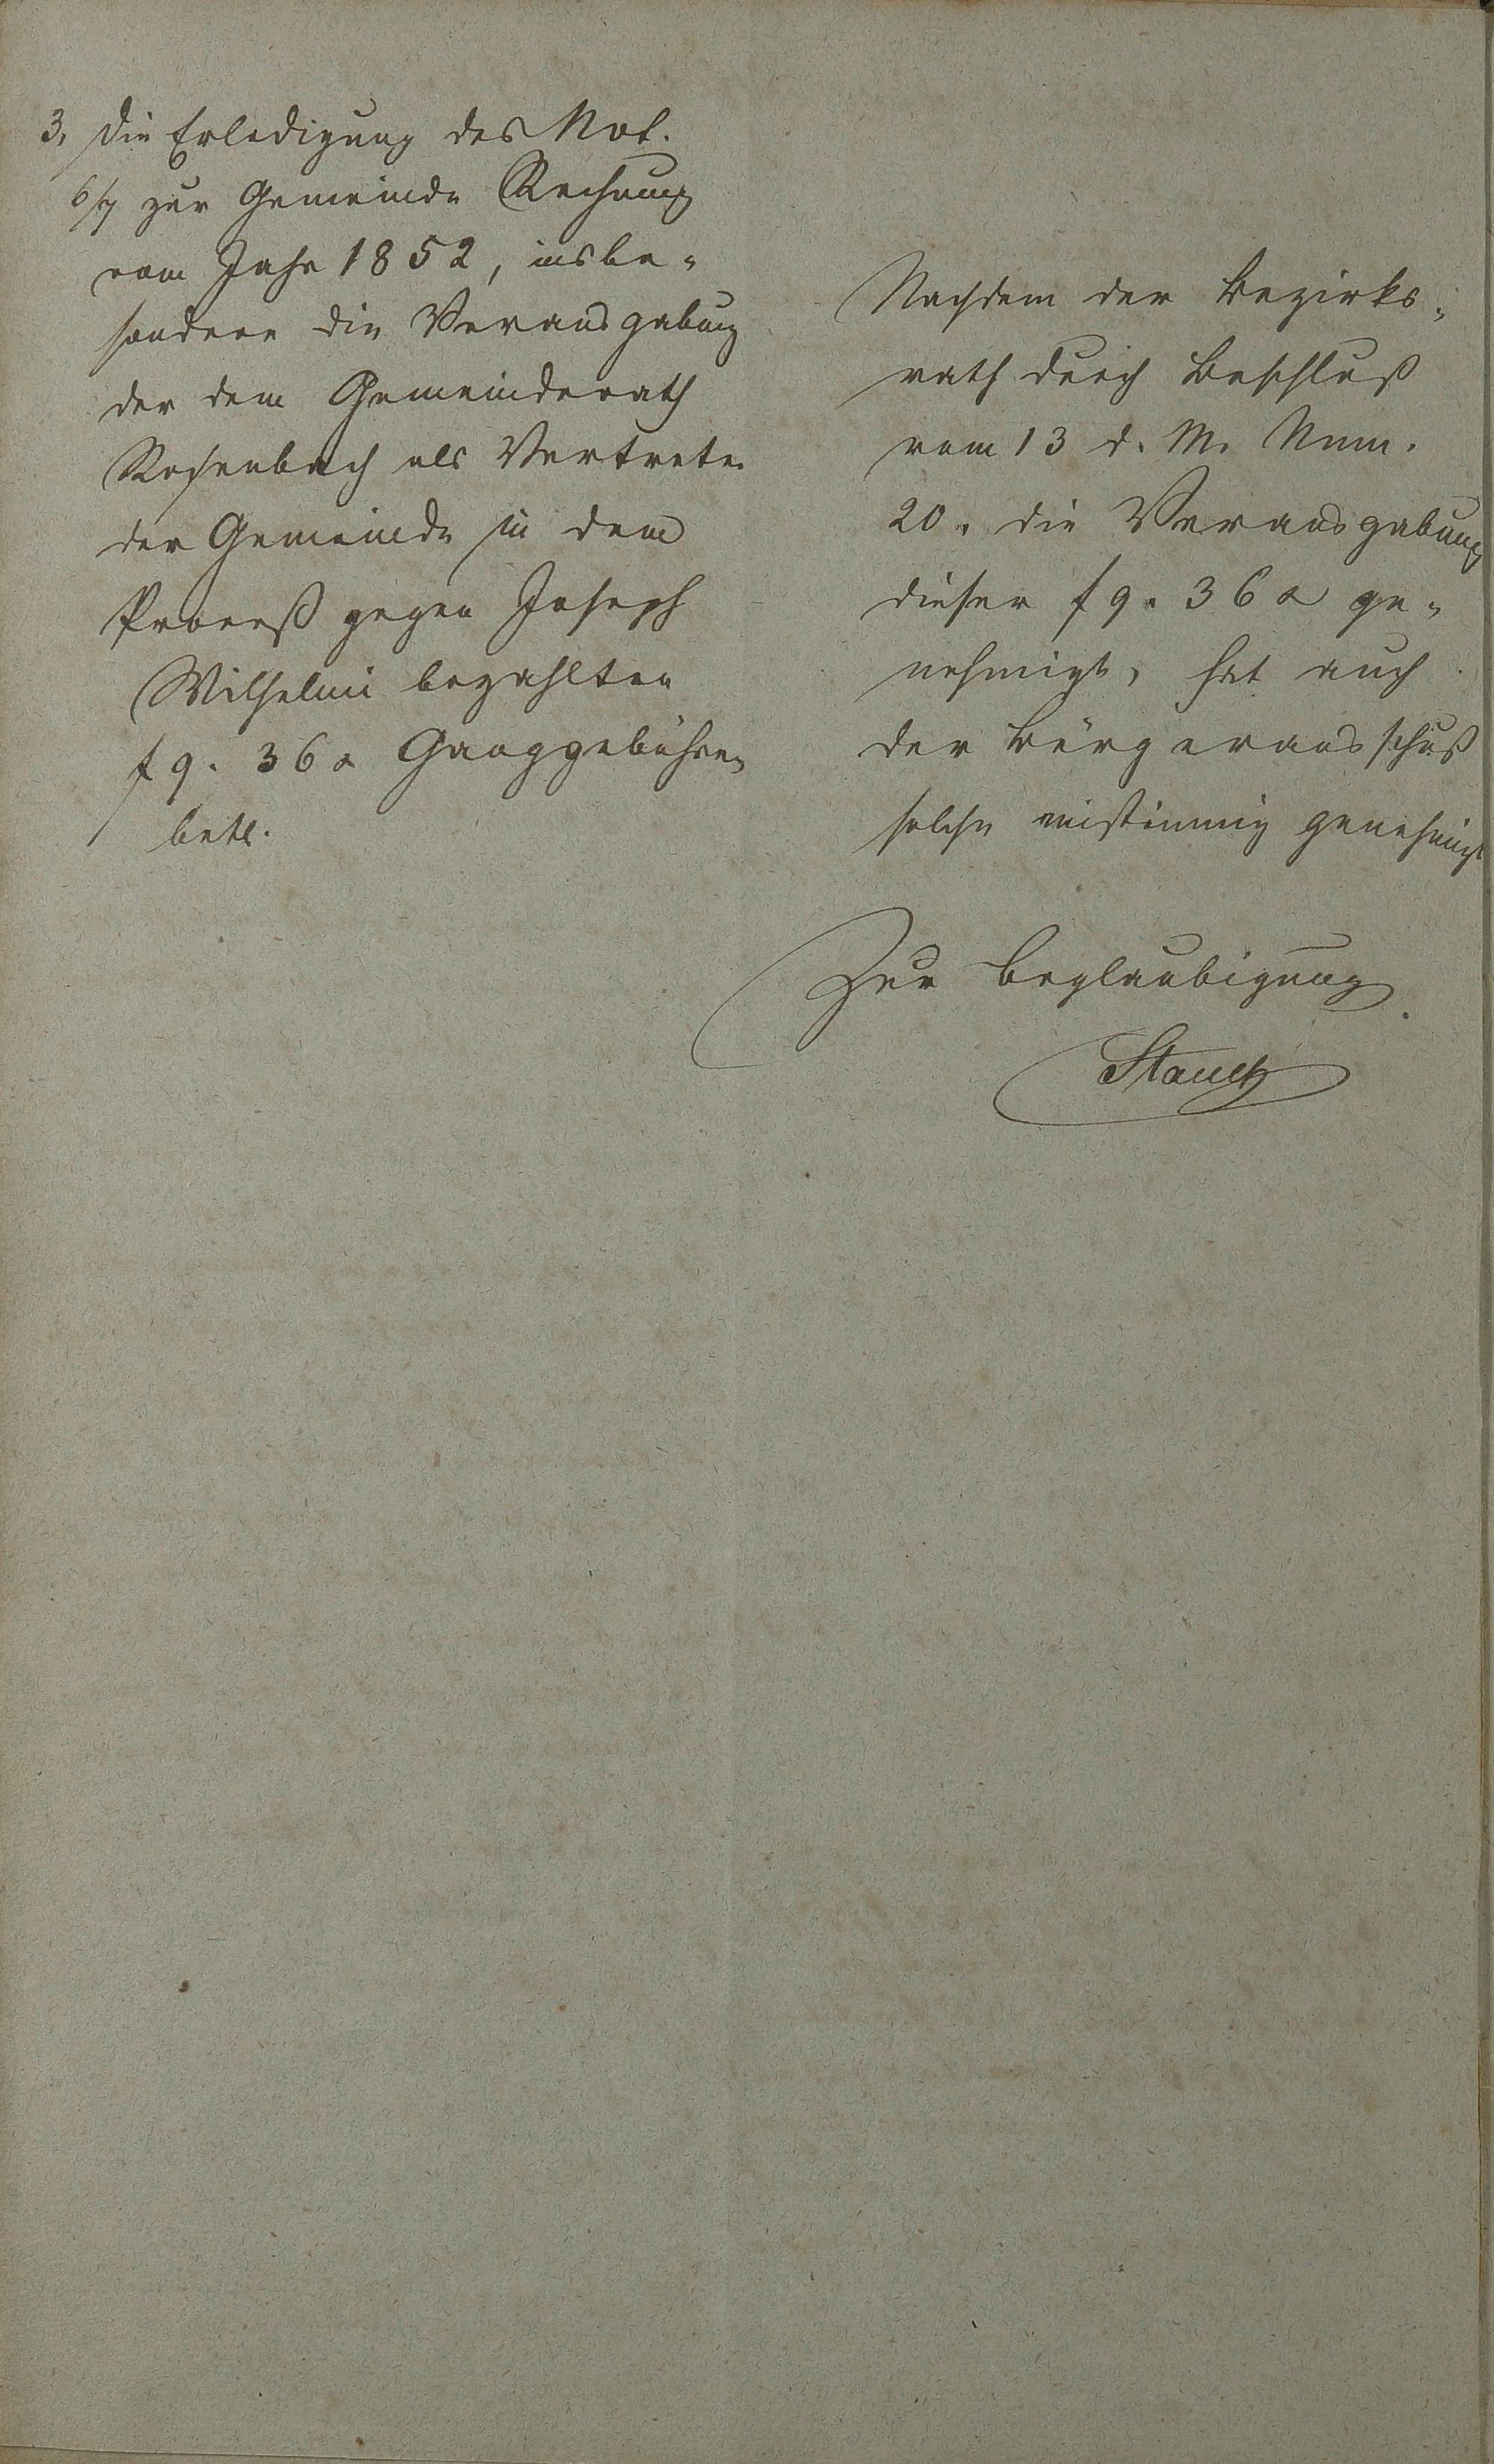 3, Die Erledigung des Not.
6/7 zur Gemeinde Rechnung
vom Jahr 1852, insbe-
sondere die Verausgabung
der dem Gemeinderath
als Vertreter
der Gemeinde in dem
Proceß gegen Joseph
Wilhelmi bezahlten
f 9. 36 x Ganggebühren
betr.
Nachdem der Bezirks-
rath durch Beschluß
vom 13 d. M. Num.
20. die Verausgabung
dieser f 9. 36 x ge-
nehmigt, hat auch
der Bürgerausschuß
solche einstimmig genehmigt
Zur Beglaubigung.